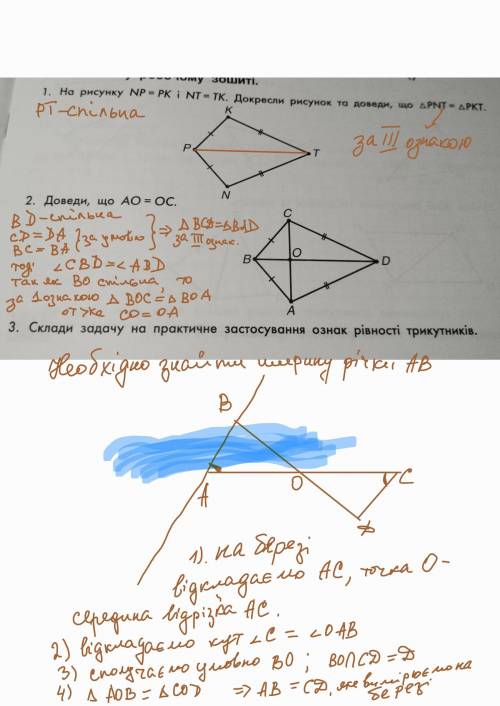 у робочому зошиті.
1. На рисунку NP = PK і NT = TK. Докресли рисунок та доведи, що △PNT = △PKT.
PT - спільна
за III ознакою
K
P
T
N
2. Доведи, що AO = OC.
BD - спільна
CD = DA
BC = BA } за умовою } ⇒ △BCD = △BAD за III ознак.
тоді ∠CBD = ∠ABD
так як BO спільна, то
за 1 ознакою △BOC = △BOA
отже CO = OA
C
B
O
D
A
3. Склади задачу на практичне застосування ознак рівності трикутників.
Необхідно знайти ширину річки AB
B
A
O
C
D
1). На березі
відкладаємо AC, точка O -
середина відрізка AC.
2) відкладаємо кут ∠C = ∠OAB
3) сполучаємо умовно BO ; BO∩CD = D
4) △AOB = △COD ⇒ AB = CD, яке вимірюємо на
березі